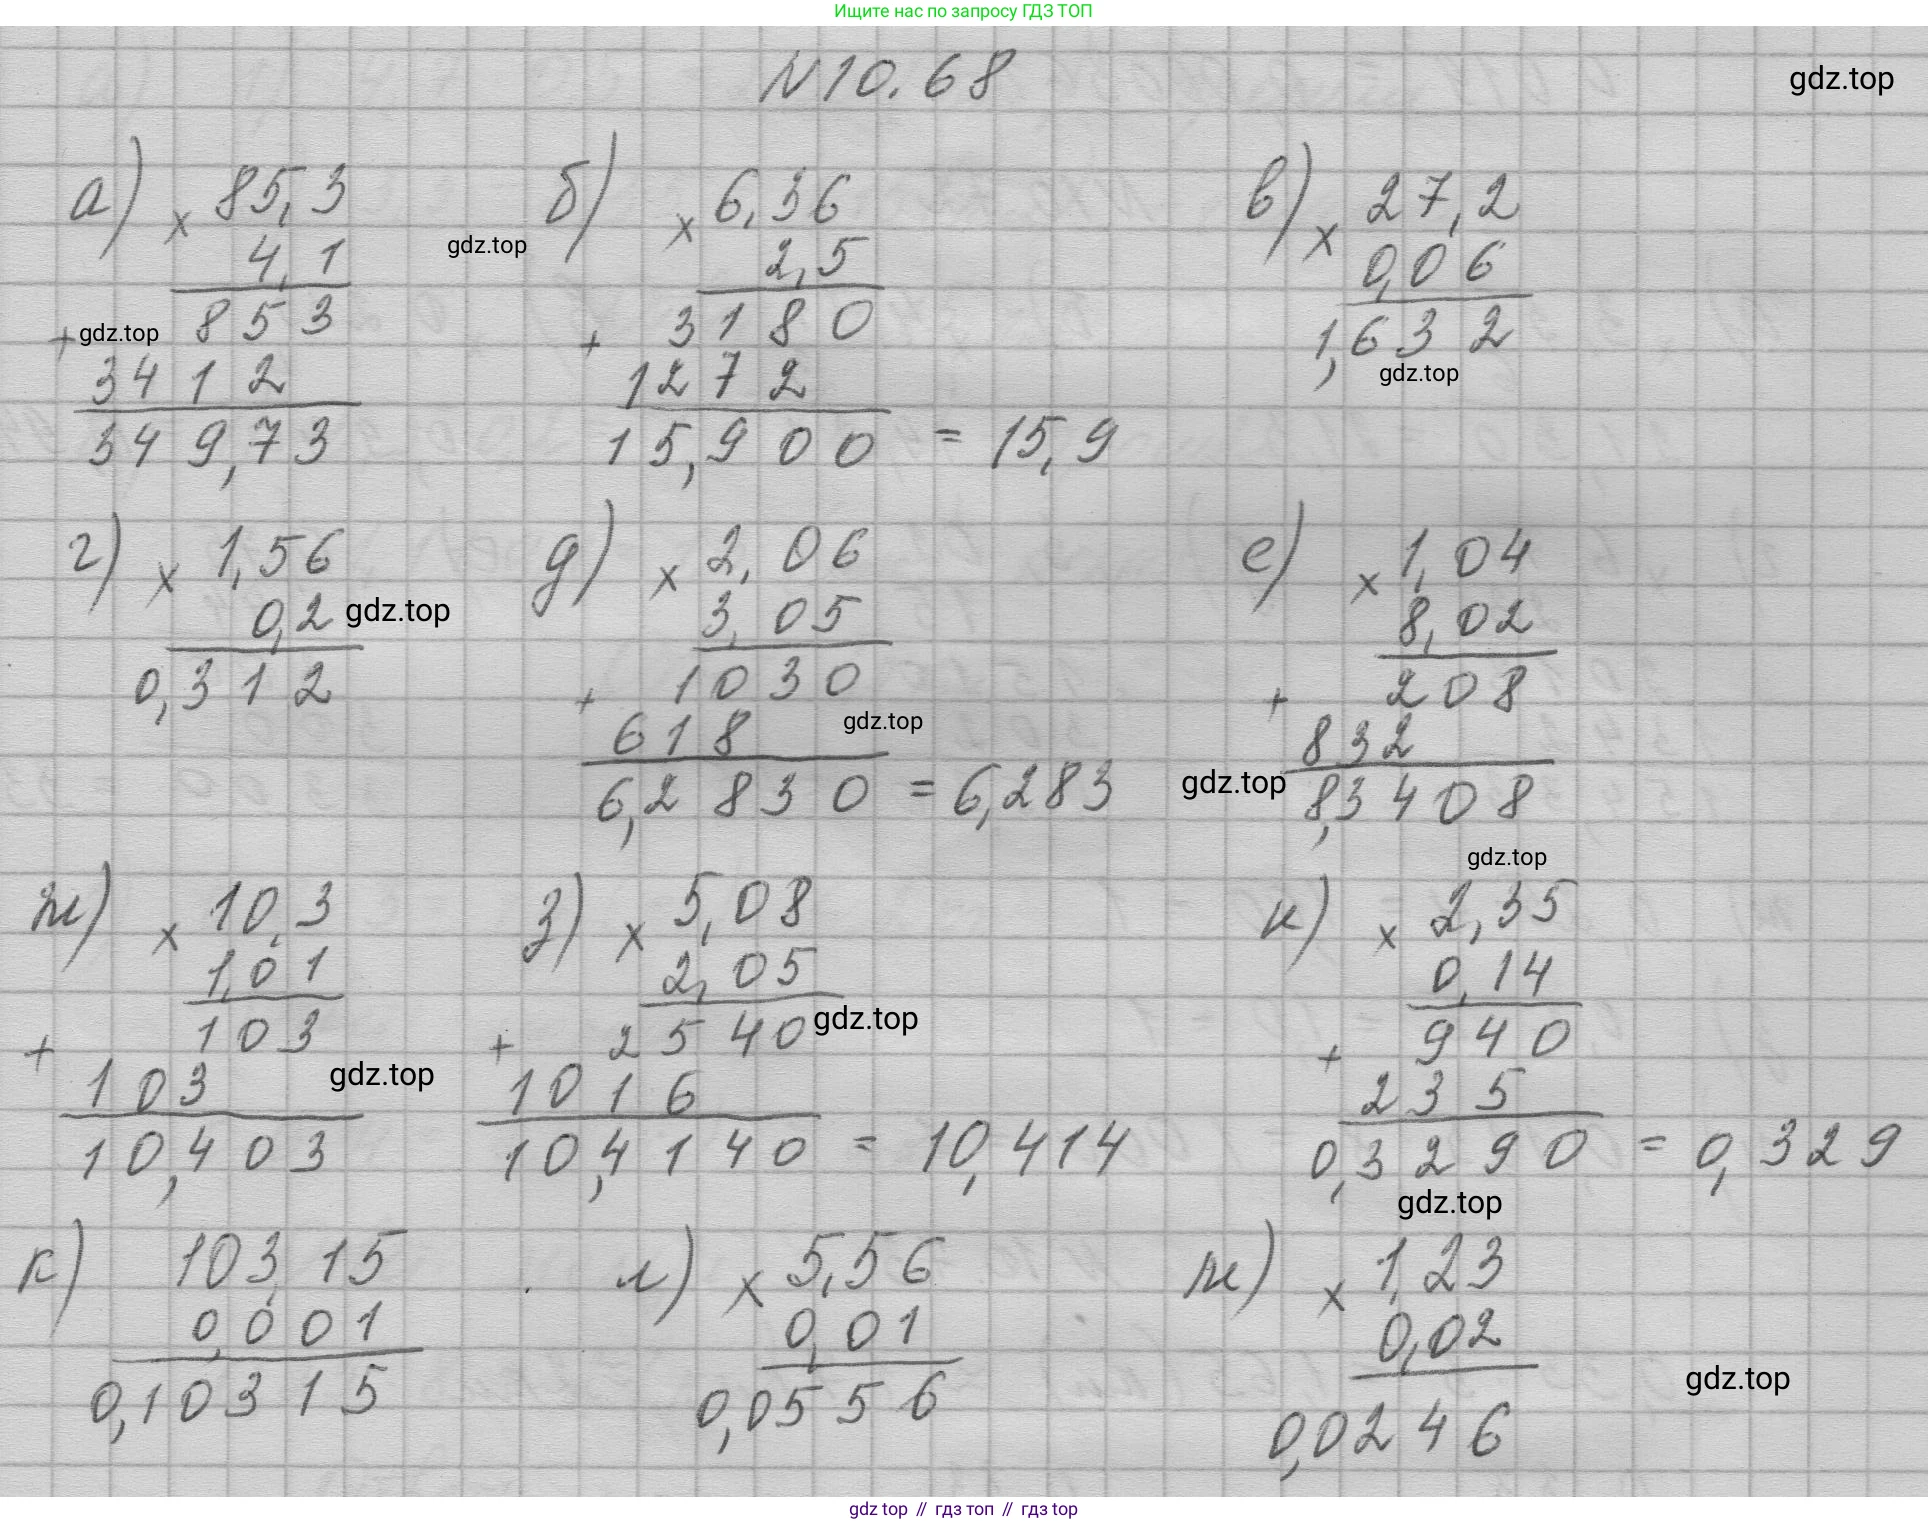 Ищите нас по запросу ГДЗ ТОП
N10.68
gdz.top
а) × 85,3
4,1
853
+ gdz.top
3412
349,73
gdz.top
б) × 6,36
2,5
3180
+ 1272
15,900 = 15,9
в) × 27,2
0,06
1,632
gdz.top
г) × 1,56
0,2
gdz.top
0,312
д) × 2,06
3,05
1030
+ 618
gdz.top
6,2830 = 6,283
е) × 1,04
8,02
208
+ 832
gdz.top
8,3408
ж) × 10,3
1,01
103
+ 103
gdz.top
10,403
з) × 5,08
2,05
2540
gdz.top
+ 1016
10,4140 = 10,414
gdz.top
и) × 2,35
0,14
940
+ 235
0,3290 = 0,329
gdz.top
к) 103,15
0,001
0,10315
л) × 5,56
0,01
0,0556
м) × 1,23
0,02
gdz.top
0,0246
gdz top // гдз топ // гдз top